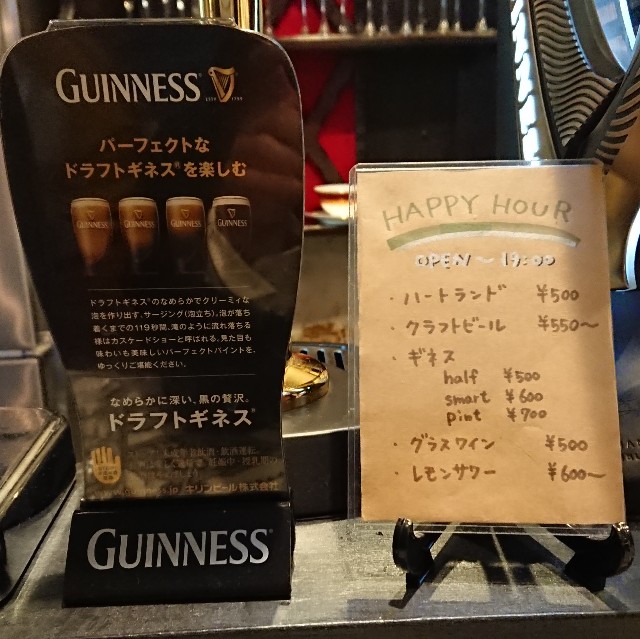 GUINNESS®
パーフェクトな
ドラフトギネス®を楽しむ
GUINNESS GUINNESS GUINNESS GUINNESS
ドラフトギネス®のなめらかでクリーミィな
泡を作り出す、サージング(泡立ち)。泡が落ち
着くまでの119秒間、滝のように流れ落ちる
様はカスケードショーと呼ばれる。見た目も
味わいも美味しいパーフェクトパイントを、
ゆっくりご堪能ください。
なめらかに深い、黒の贅沢。
ドラフトギネス®
キリンビール株式会社
GUINNESS®
HAPPY HOUR
OPEN~19:00
・ハートランド ¥500
・クラフトビール ¥550~
・ギネス
half ¥500
smart ¥600
pint ¥700
・グラスワイン ¥500
・レモンサワー ¥600~